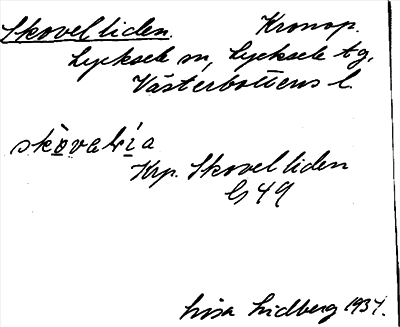 Skovelliden. Kronop.
Lycksele sn, Lycksele tg,
Västerbottens l.
skòvalìa
Krp. Skovelliden
G 49
Lisa Lidberg 1934.